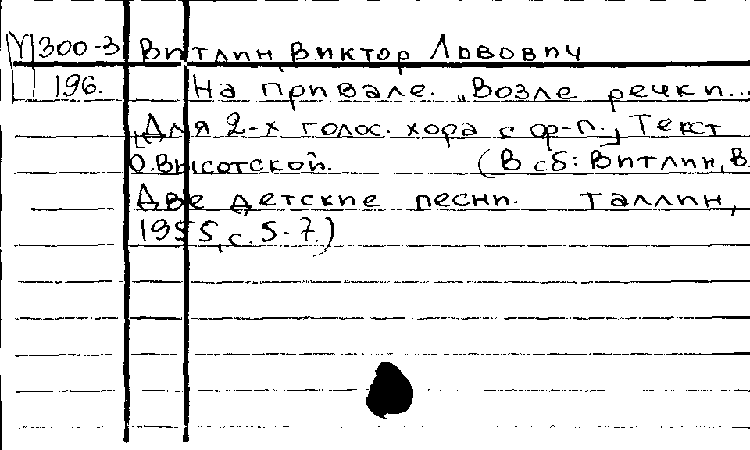 М300-3 Витлин Виктор Львович
196. На привале. „Возле речки...
[Для 2-х голос. хора с ф-п.] Текст
О.Высотской. (В сб: Витлин, В.
Две детские песни. Таллин,
1955, с. 5-7.)